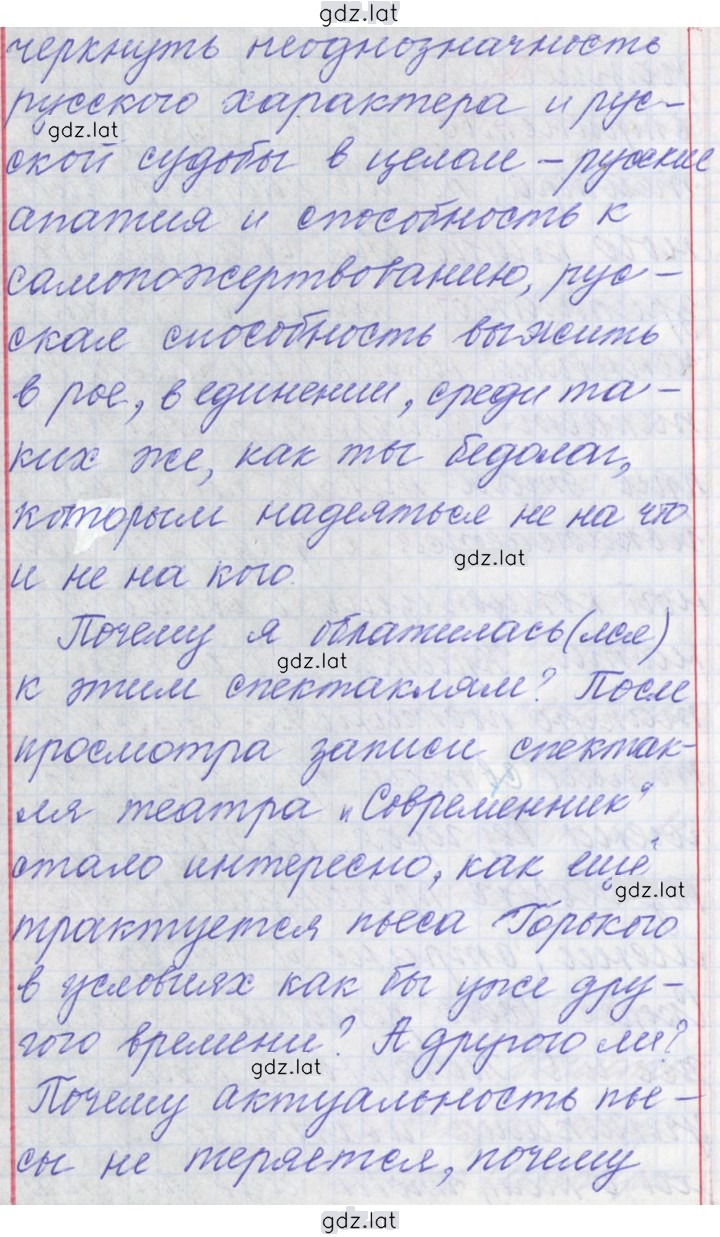 gdz.lat
черкнуть неоднозначность
русского характера и рус-
gdz.lat
ской судьбы в целом – русские
апатия и способность к
самопожертвованию, рус-
ская способность выжить
в рое, в единении, среди та-
ких же, как ты бедолаг,
которым надеяться не на что
gdz.lat
и не на кого.
Почему я обратилась(лся)
gdz.lat
к этим спектаклям? После
просмотра записи спектак-
ля театра „Современник“
стало интересно, как ещё
gdz.lat
трактуется пьеса Горького
в условиях как бы уже дру-
гого времени? А другого ли?
gdz.lat
Почему актуальность пье-
сы не теряется, почему
gdz.lat